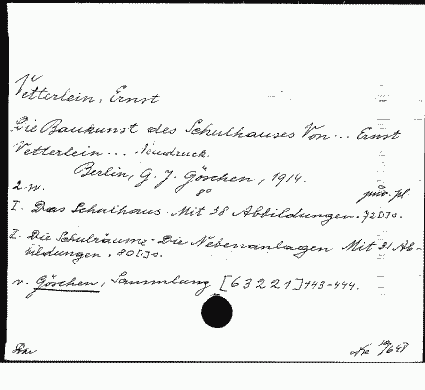 Vetterlein, Ernst
Die Baukunst des Schulhauses Von... Ernst
Vetterlein... Neudruck.
Berlin, G. J. Göschen, 1914.
2 w. 8°
I. Das Schulhaus. Mit 38 Abbildungen.
2. Die Schulräume - Die Nebenanlagen Mit 31 Ab-
bildungen.
v. Göschen, Sammlung [63221] 443-444.